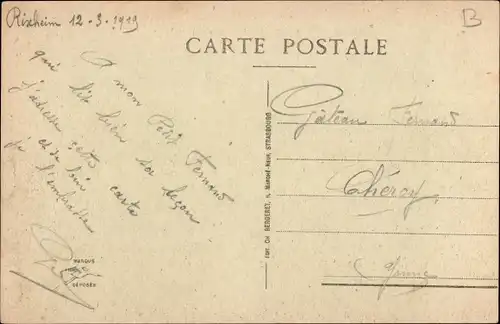 Rixheim 12-3-1919
B
CARTE POSTALE
A mon Petit Fernand
qui lit bien sa leçon
j'adresse cette carte
et de loin
je l'embrasse
MARQUE
DÉPOSÉE
IMP. CH. BERGERET, MARCHÉ-NEUF, STRASBOURG
Gâteau Fernand
Chéroy
Yonne